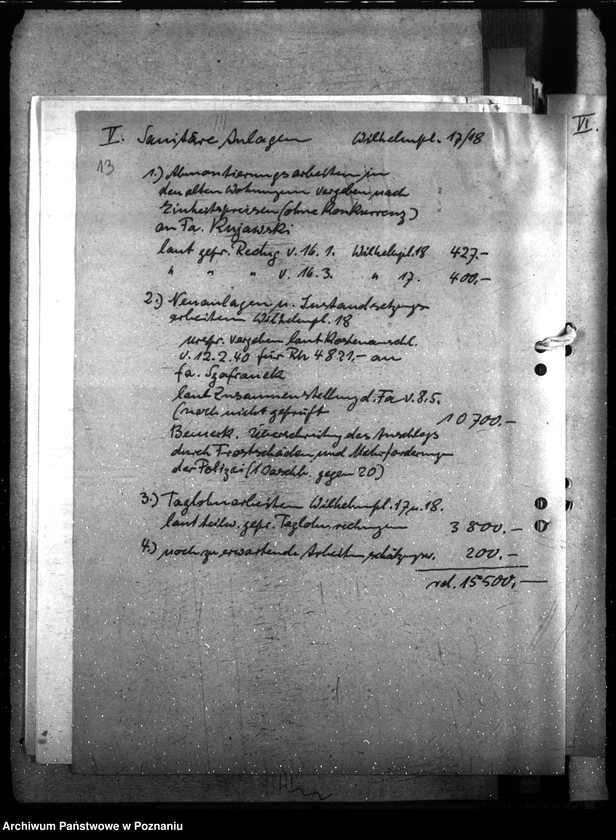 V. Sanitäre Anlagen Wilhelmpl. 17/18
VI.
13
1.) Abmontierungsarbeiten in
den alten Wohnungen vergeben nach
Einheitspreisen (ohne Konkurrenz)
an Fa. Kujawski
laut gepr. Rechng v. 16.1. Wilhelmpl. 18 427.-
" " " v. 16.3. " 17. 400.-
2.) Neuanlagen u. Instandsetzungs
arbeiten Wilhelmpl. 18
urspr. vergeben laut Kostenanschl.
v. 12.2.40 für Rm 4821.- an
fa. Szafranek
laut Zusammenstellung d. Fa v. 8.5.
(noch nicht geprüft 10700.-
Bemerk. Überschreitung des Anschlags
durch Frostschäden und Mehrforderung
der Polizei (gegen 20)
3.) Taglohnarbeiten Wilhelmpl. 17 u. 18.
laut teilw. gepr. Taglohnrechnungen 3800.-
4.) noch zu erwartende Arbeiten schätzgsw. 200.-
rd. 15500,-
Archiwum Państwowe w Poznaniu